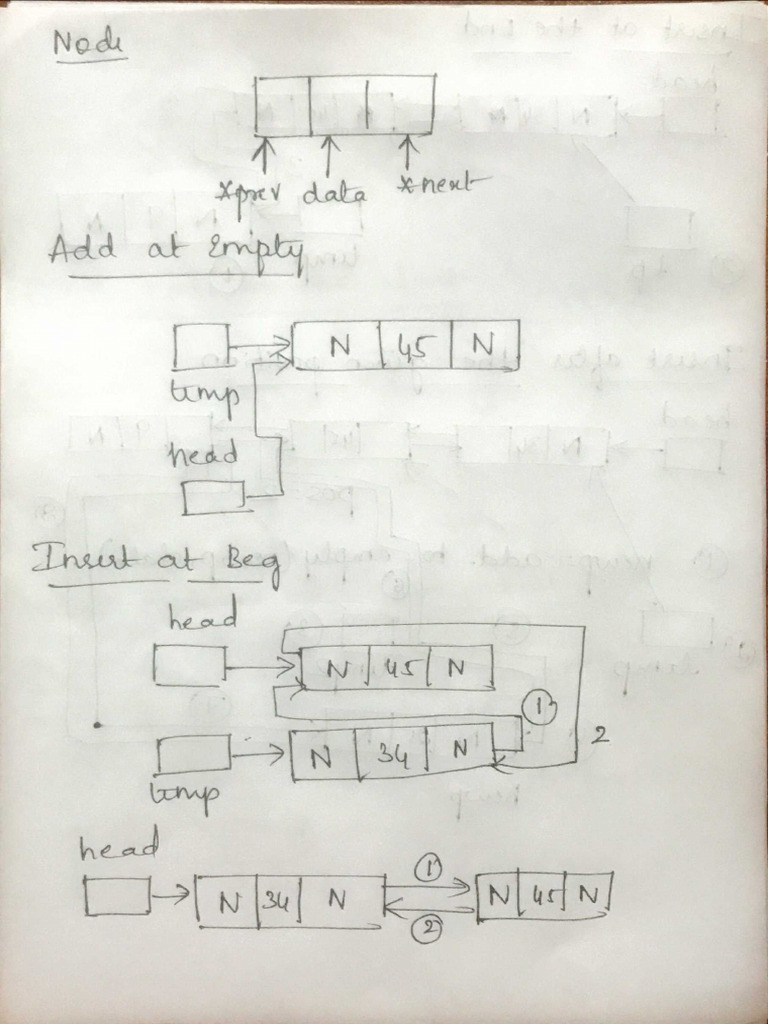 Node
*prev data *next
Add at Empty
N 45 N
temp
head
Insert at Beg
head
N 45 N
1
N 34 N
2
temp
head
1
N 34 N N 45 N
2